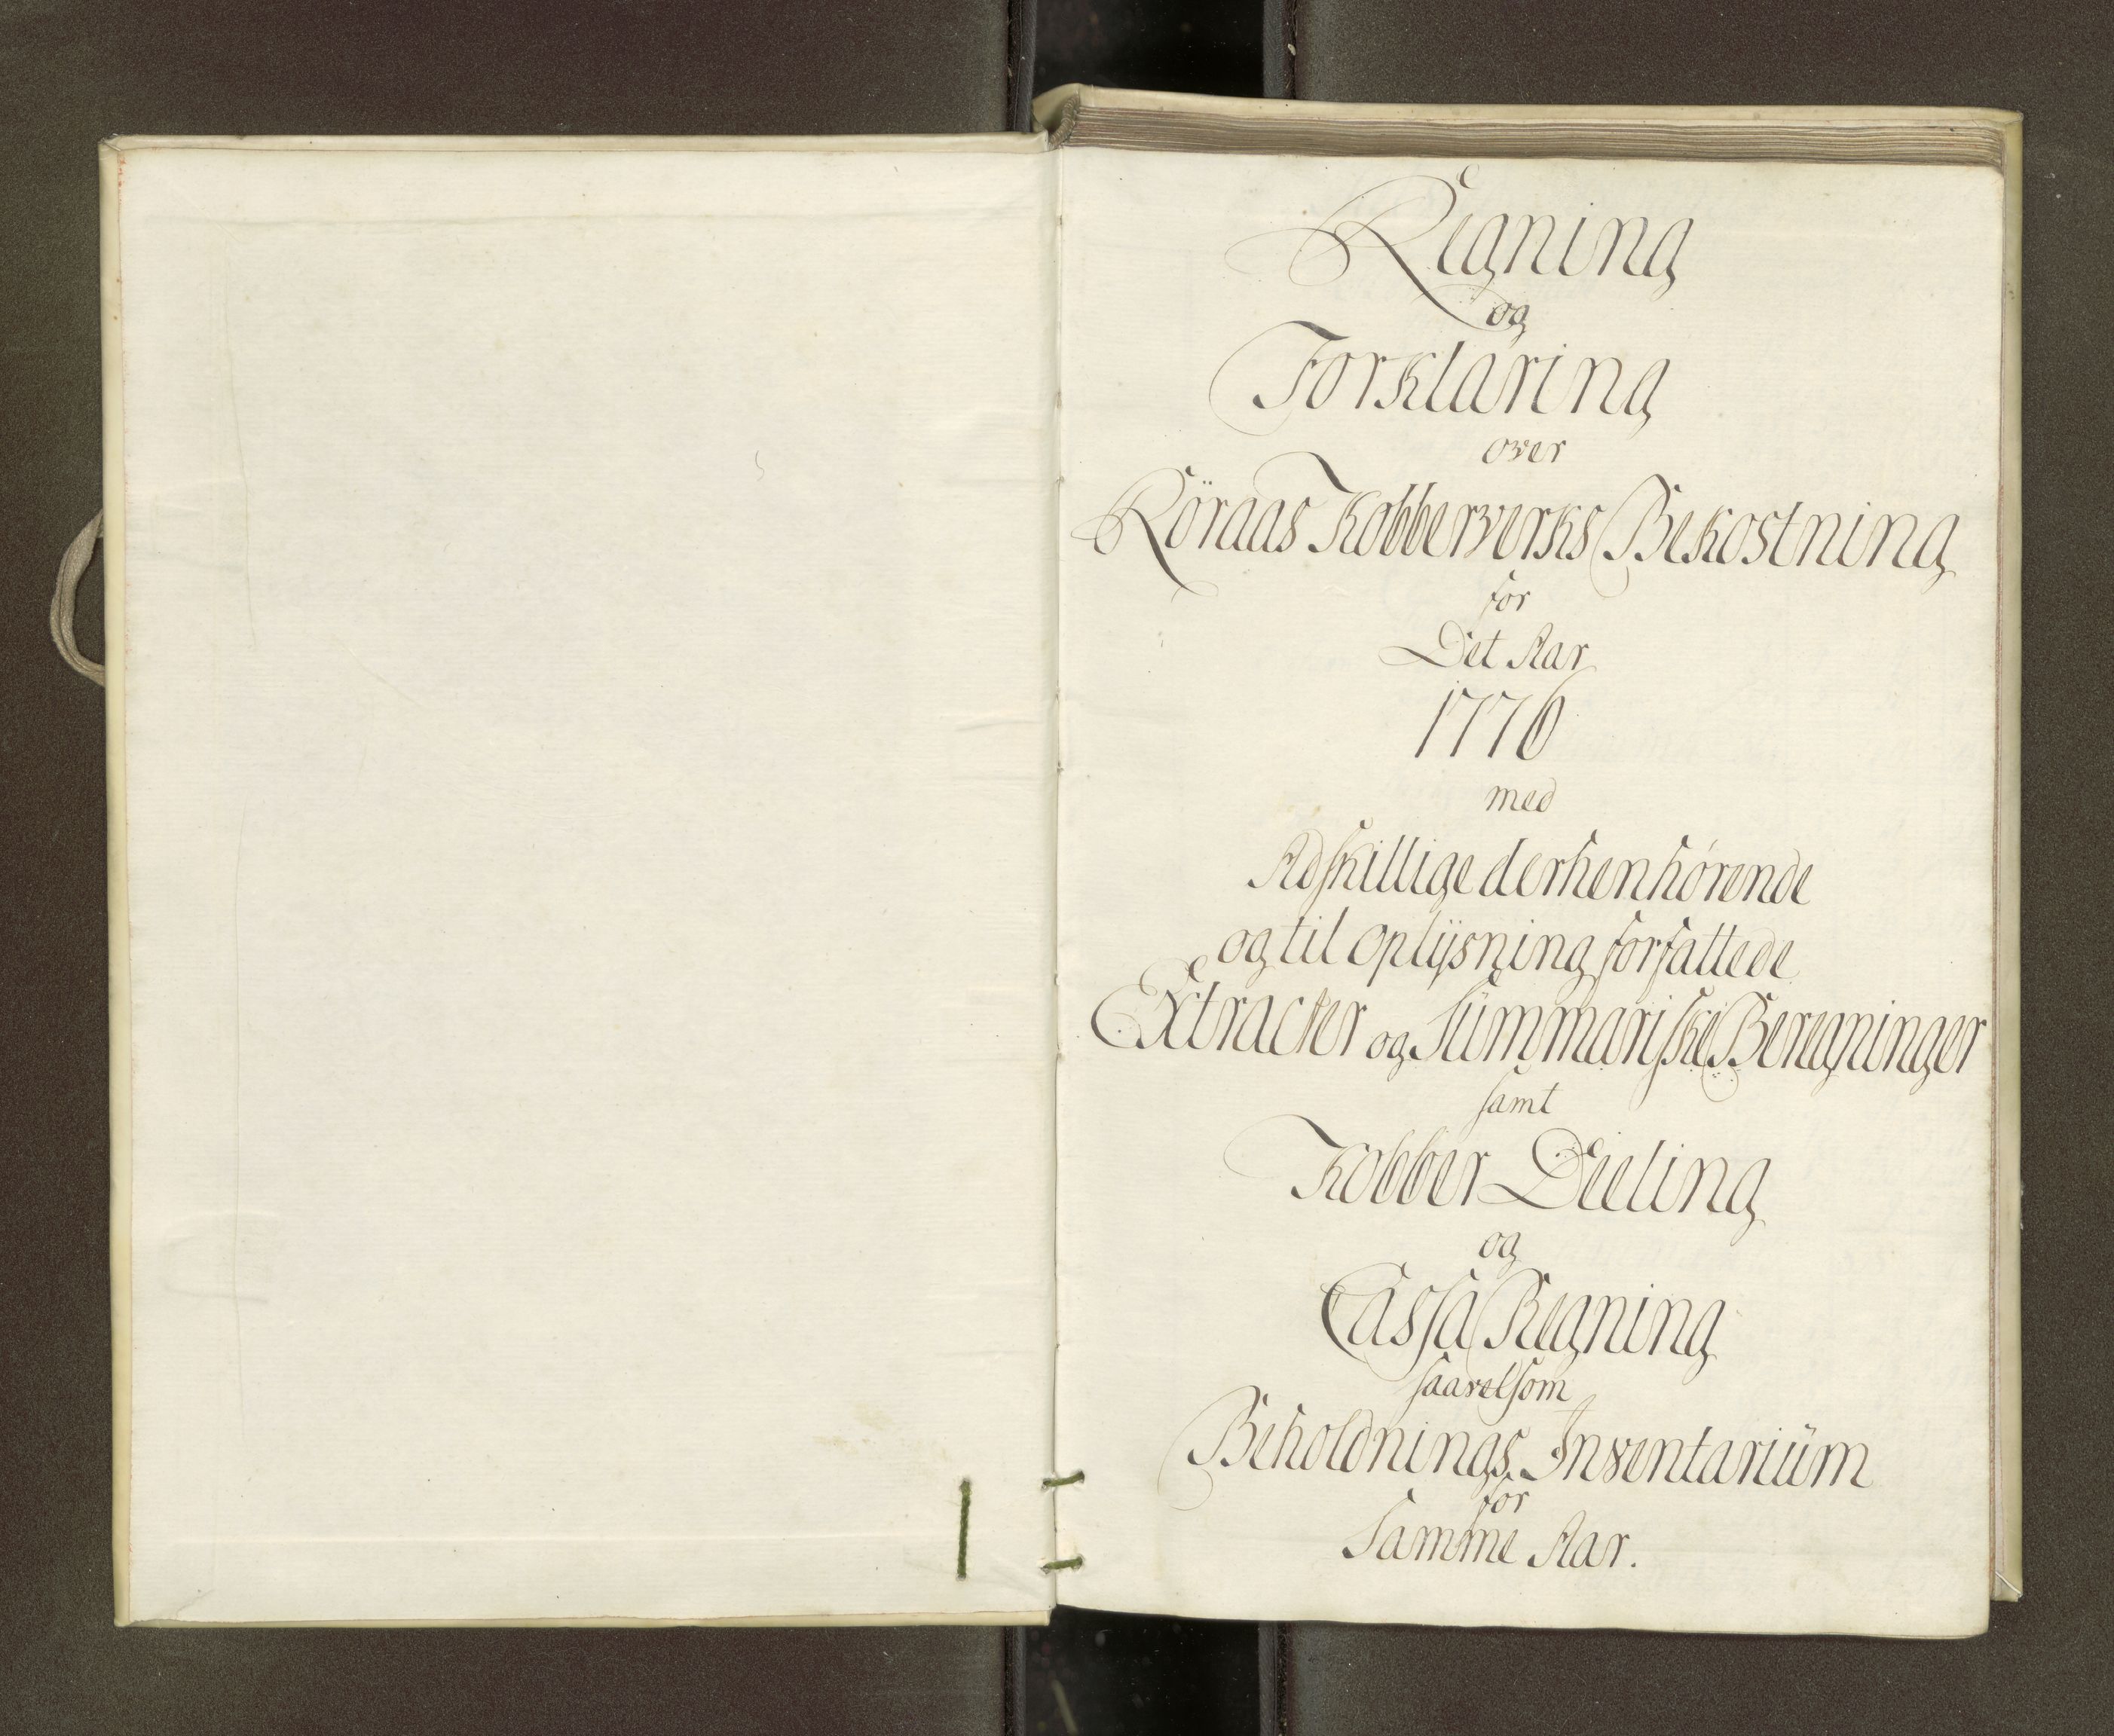 Regning
og
Forklaring
over
Röraas Kobberverks Bekostning
for
Det Aar
1776
med
Adskillige derhenhørende
og til Oplÿsning forfattede
Extracter og Summariske Beregninger
samt
Kobber Deeling
og
Cassa Regning
saavelsom
Beholdnings Inventarium
for
Samme Aar.